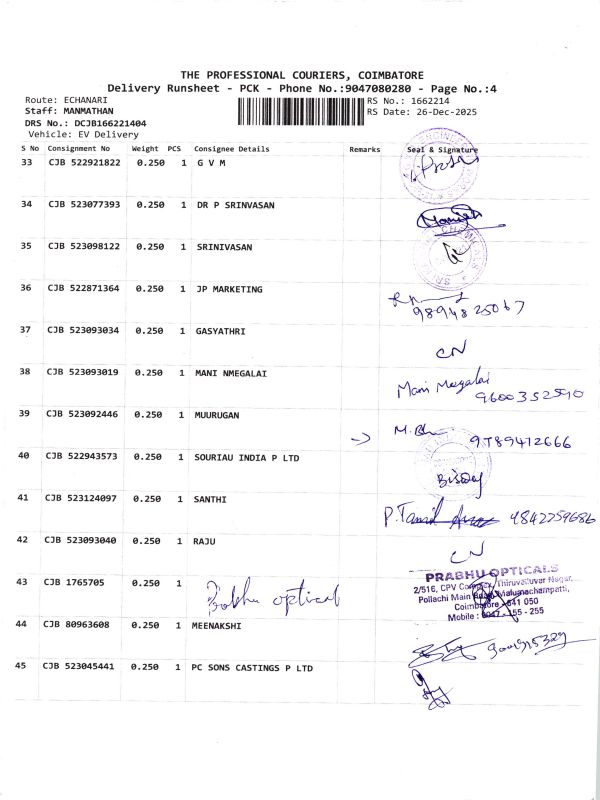 THE PROFESSIONAL COURIERS, COIMBATORE
Delivery Runsheet - PCK - Phone No.:9047080280 - Page No.:4
Route: ECHANARI
Staff: MANMATHAN
DRS No.: DCJB166221404
Vehicle: EV Delivery
RS No.: 1662214
RS Date: 26-Dec-2025
S No Consignment No Weight PCS Consignee Details Remarks Seal & Signature
33 CJB 522921822 0.250 1 G V M
34 CJB 523077393 0.250 1 DR P SRINVASAN
35 CJB 523098122 0.250 1 SRINIVASAN
36 CJB 522871364 0.250 1 JP MARKETING
9894825067
37 CJB 523093034 0.250 1 GASYATHRI
CN
38 CJB 523093019 0.250 1 MANI NMEGALAI
Mani Megalai
9600352590
39 CJB 523092446 0.250 1 MUURUGAN
9789412666
40 CJB 522943573 0.250 1 SOURIAU INDIA P LTD
41 CJB 523124097 0.250 1 SANTHI
P. Tamil 9842259686
42 CJB 523093040 0.250 1 RAJU
CN
43 CJB 1765705 0.250 1
Prabhu optical
PRABHU OPTICALS
2/516, CPV Complex, Thiruvalluvar Nagar,
Pollachi Main Road, Malumachampatti,
Coimbatore - 641 050
Mobile :
44 CJB 80963608 0.250 1 MEENAKSHI
45 CJB 523045441 0.250 1 PC SONS CASTINGS P LTD